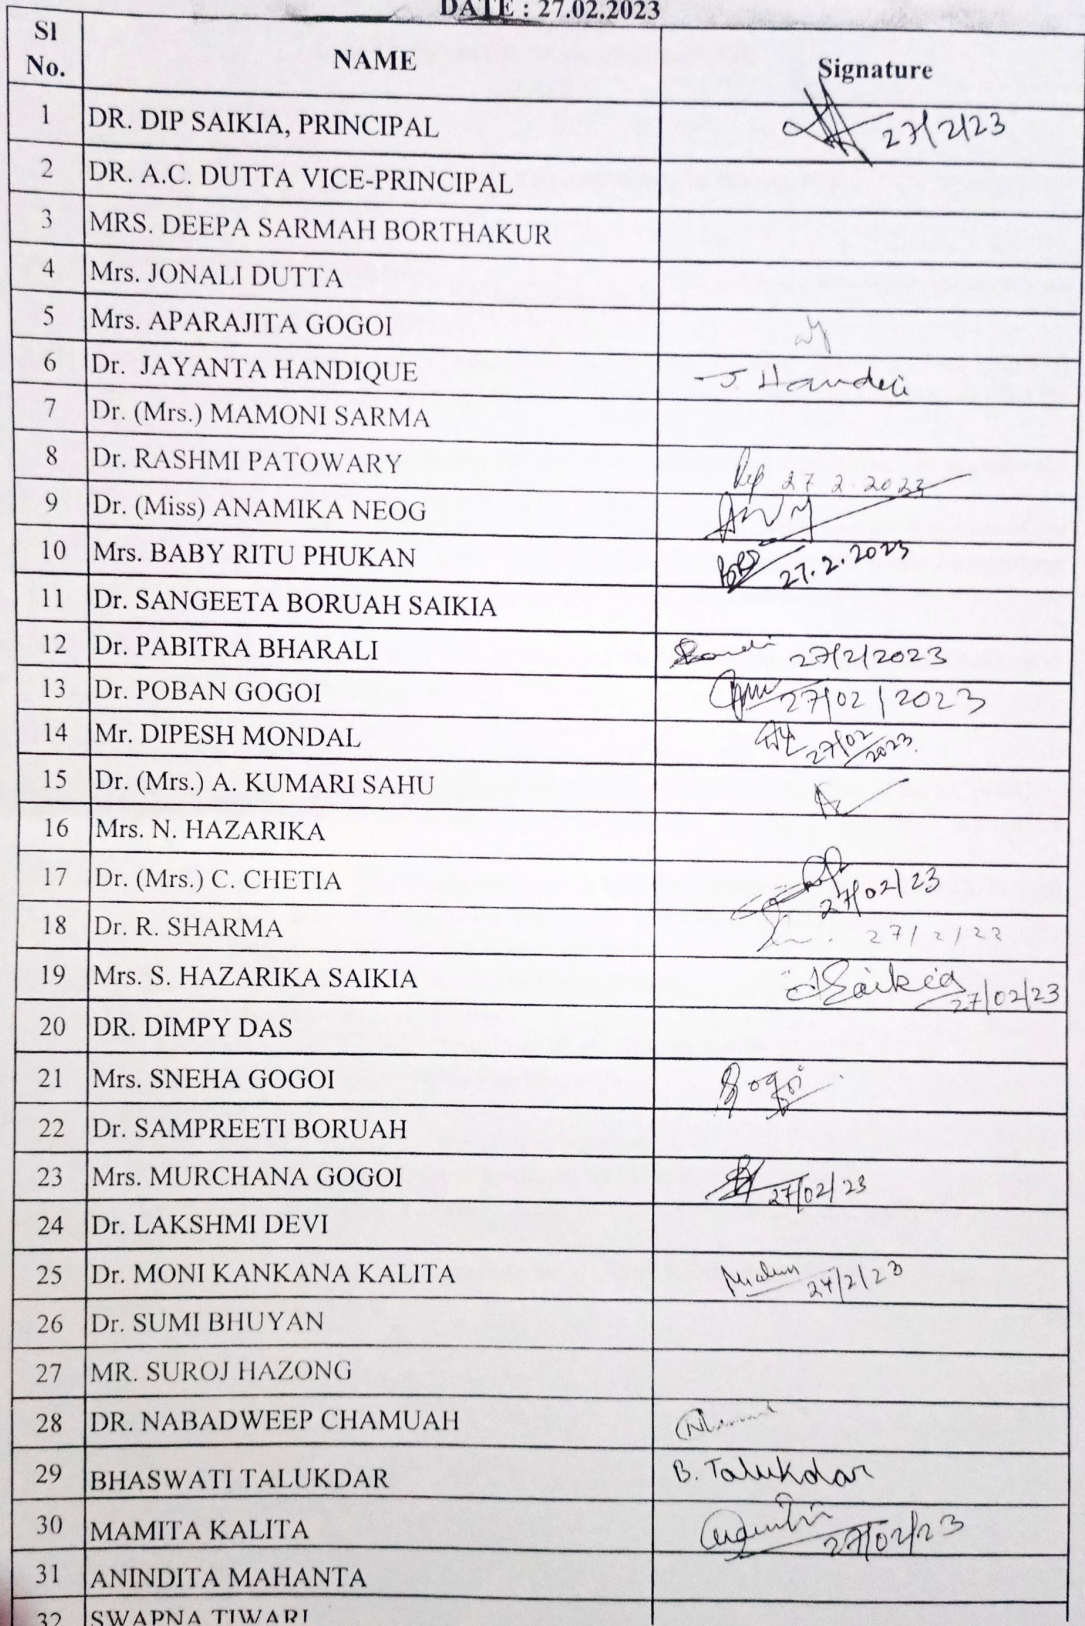 DATE : 27.02.2023
Sl No. NAME Signature
1 DR. DIP SAIKIA, PRINCIPAL 27/2/23
2 DR. A.C. DUTTA VICE-PRINCIPAL
3 MRS. DEEPA SARMAH BORTHAKUR
4 Mrs. JONALI DUTTA
5 Mrs. APARAJITA GOGOI
6 Dr. JAYANTA HANDIQUE J. Handi
7 Dr. (Mrs.) MAMONI SARMA
8 Dr. RASHMI PATOWARY 27 2 2023
9 Dr. (Miss) ANAMIKA NEOG
10 Mrs. BABY RITU PHUKAN 27.2.2023
11 Dr. SANGEETA BORUAH SAIKIA
12 Dr. PABITRA BHARALI 27/2/2023
13 Dr. POBAN GOGOI 27/02/2023
14 Mr. DIPESH MONDAL 27/02/2023
15 Dr. (Mrs.) A. KUMARI SAHU
16 Mrs. N. HAZARIKA
17 Dr. (Mrs.) C. CHETIA 27/02/23
18 Dr. R. SHARMA 27/2/22
19 Mrs. S. HAZARIKA SAIKIA Saikia 27/02/23
20 DR. DIMPY DAS
21 Mrs. SNEHA GOGOI Gogoi
22 Dr. SAMPREETI BORUAH
23 Mrs. MURCHANA GOGOI 27/02/23
24 Dr. LAKSHMI DEVI
25 Dr. MONI KANKANA KALITA 24/2/23
26 Dr. SUMI BHUYAN
27 MR. SUROJ HAZONG
28 DR. NABADWEEP CHAMUAH
29 BHASWATI TALUKDAR B. Talukdar
30 MAMITA KALITA 27/02/23
31 ANINDITA MAHANTA
32 SWAPNA TIWARI